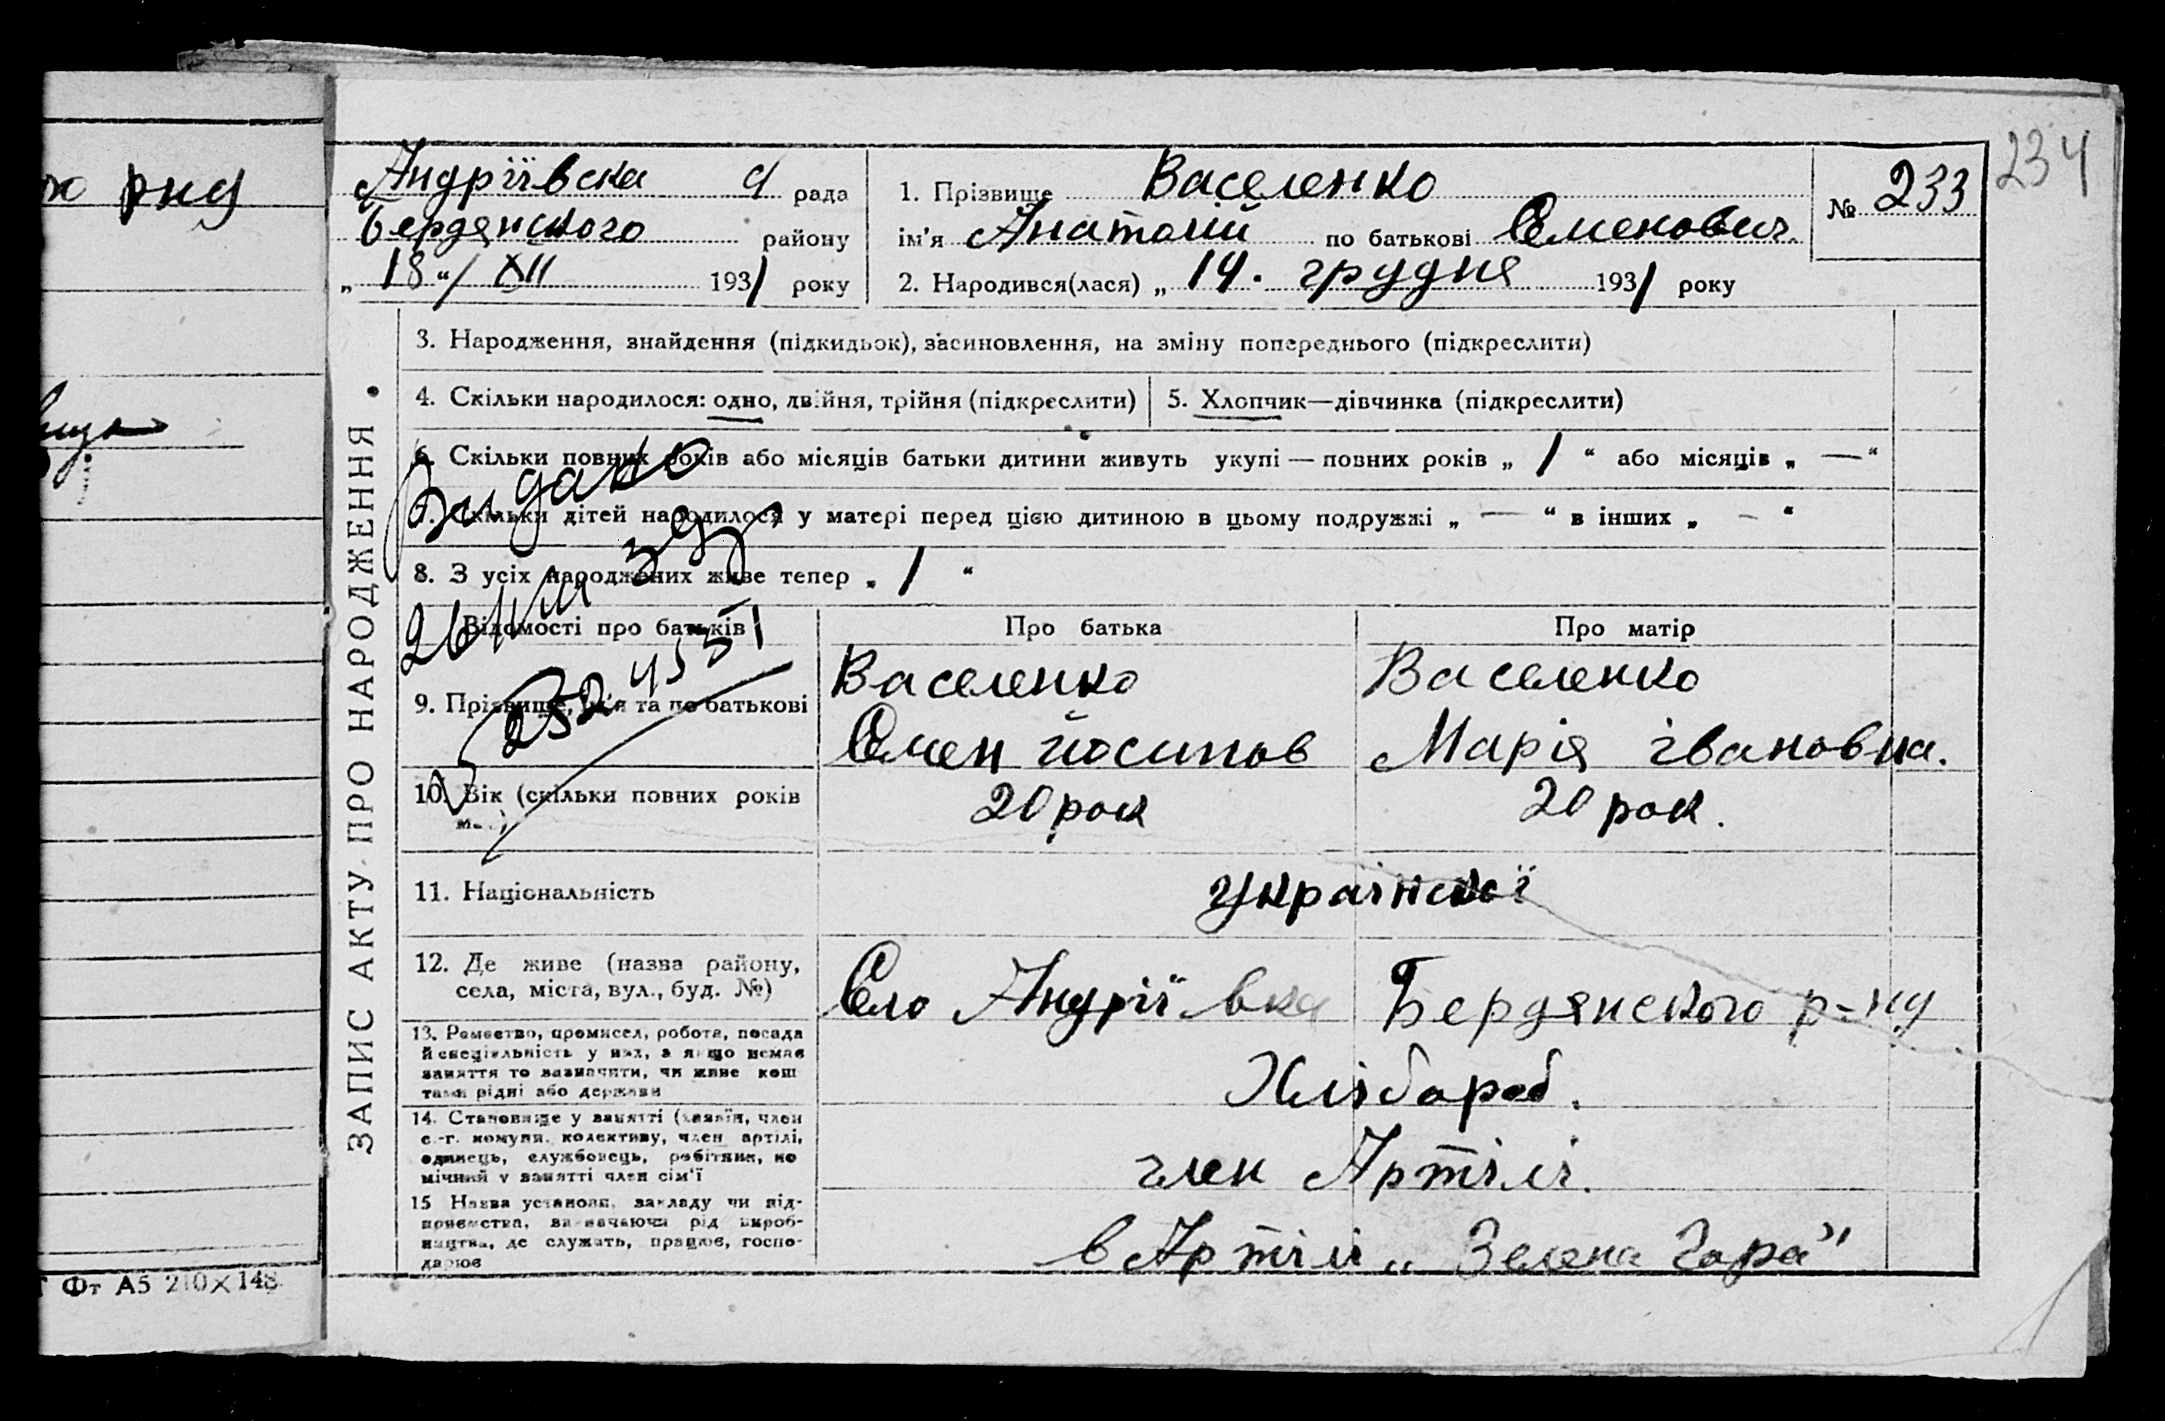 ю рну
Фт А5 210×148
234
Андріївска с/ рада
Бердянского району
„ 18 “/ XII 1931 року
1. Прізвище Васеленко
№ 233
ім'я Анатолій по батькові Семенович.
2. Народився(лася) „ 14. грудня 1931 року
ЗАПИС АКТУ ПРО НАРОДЖЕННЯ
3. Народження, знайдення (підкидьок), засиновлення, на зміну попереднього (підкреслити)
4. Скільки народилося: одно, двійня, трійня (підкреслити)
5. Хлопчик—дівчинка (підкреслити)
6. Скільки повних років або місяців батьки дитини живуть укупі — повних років „ 1 “ або місяців „ — “
7. Скільки дітей народилося у матері перед цією дитиною в цьому подружжі „ — “ в інших „ – “
8. З усіх народжених живе тепер „ 1 “
Видано
252
Відомості про батьків
Про батька
Про матір
9. Прізвище, ім'я та по батькові
Васеленко
Семен йосипов
Васеленко
Марія івановна.
10. Вік (скільки повних років
20 рок
20 рок.
11. Національність
українскої
12. Де живе (назва району,
села, міста, вул., буд. №)
Село Андріївка Бердянского р-ну
13. Ремество, промисел, робота, посада
й спеціяльність у них, а якщо немає
заняття то зазначити, чи живе кош
тами рідні або держави
Хлібороб.
14. Становище у занятті (хазяїн, член
с.-г. комуни, колективу, член артілі,
одинець, службовець, робітник, по
мічний у занятті член сім'ї
член Артілі.
15 Назва установи, закладу чи під-
приємства, визначаючи рід вироб-
ництва, де служить, працює, госпо-
дарює
в Артілі „ Зелена Гора"